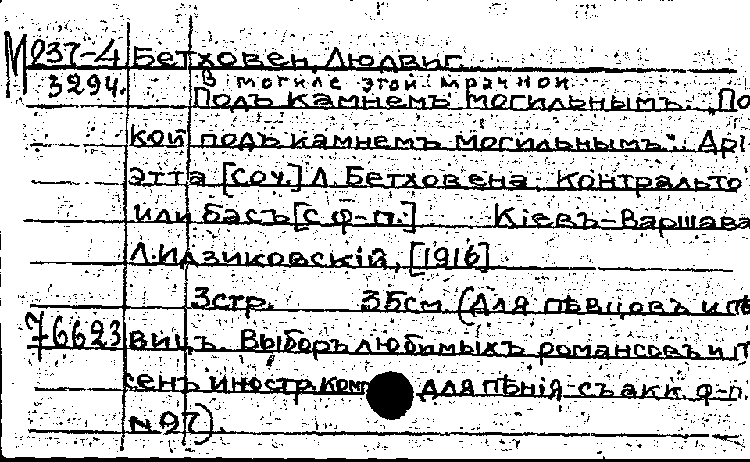 М037-4 Бетховен, Людвиг
3294. В могиле этой мрачной
Подъ камнемъ могильнымъ. „По
кой подъ камнемъ могильнымъ". Арі
этта [Соч.] Л. Бетховена. Контральто
или басъ [с ф-п.] Кіевъ-Варшава
Л. Идзиковскій, [1916]
3 стр. 35 см. (Для пѣвцовъ и пѣ
76623 вицъ. Выборъ любимыхъ романсовъ и п
сенъ иностр. комп для пѣнія съ акк. ф-п.
N 97).